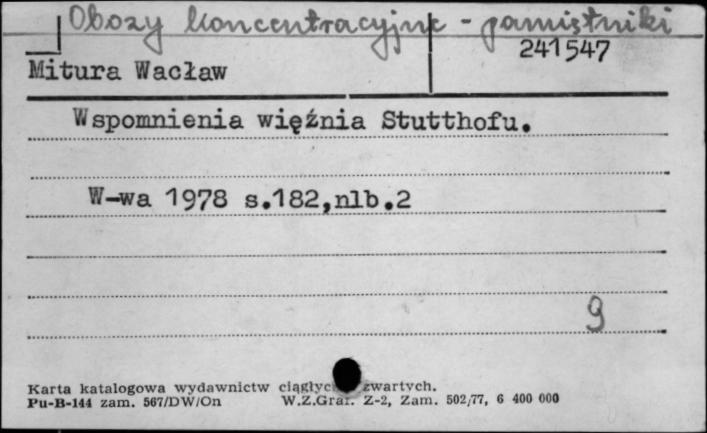 Obozy koncentracyjne - pamiętniki
241547
Mitura Wacław
Wspomnienia więźnia Stutthofu.
W-wa 1978 s.182,nlb.2
9
Karta katalogowa wydawnictw zwartych.
Pu-B-144 zam. 567/DW/On W.Z.Graf. Z-2, Zam. 502/77, 6 400 000